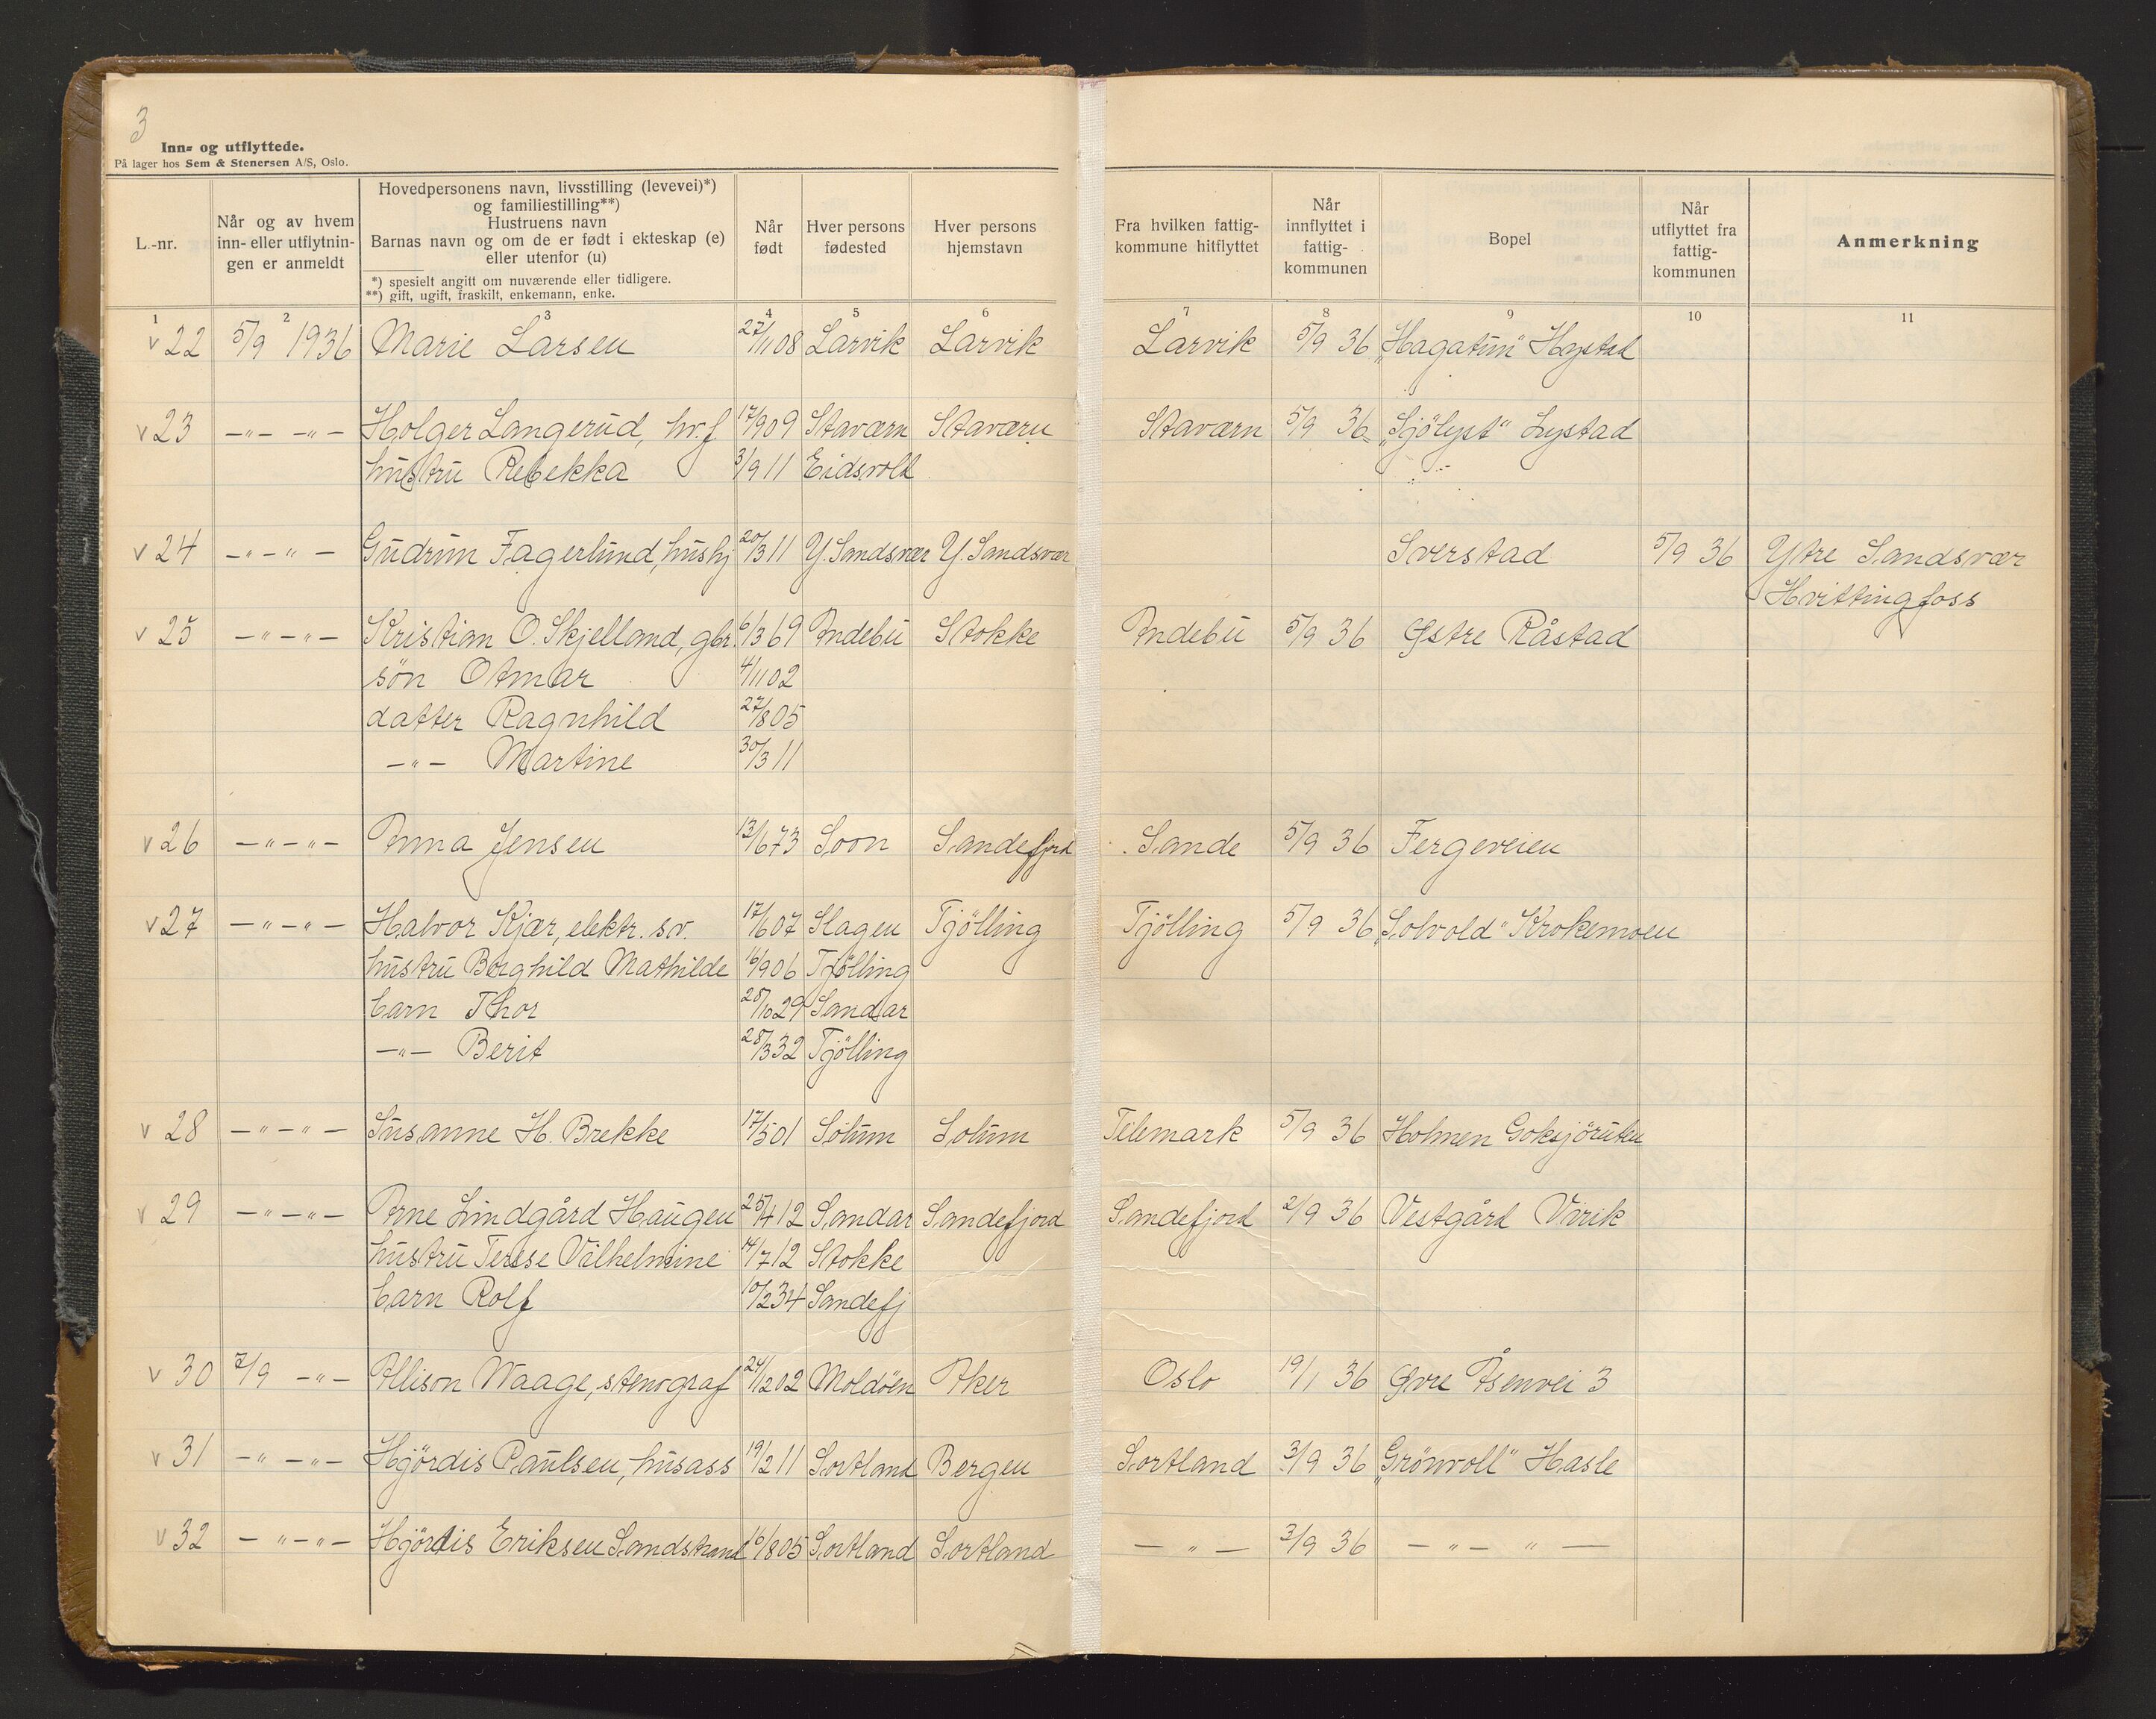 3
Inn- og utflyttede.
På lager hos Sem & Stenersen A/S, Oslo.
L.-nr.
Når og av hvem inn- eller utflytnin-gen er anmeldt
Hovedpersonens navn, livsstilling (levevei)*)
og familiestilling**)
Hustruens navn
Barnas navn og om de er født i ekteskap (e)
eller utenfor (u)
*) spesielt angitt om nuværende eller tidligere.
**) gift, ugift, fraskilt, enkemann, enke.
Når født
Hver persons fødested
Hver persons hjemstavn
Fra hvilken fattig-kommune hitflyttet
Når innflyttet i fattig-kommunen
Bopel
Når utflyttet fra fattig-kommunen
Anmerkning
1 2 3 4 5 6 7 8 9 10 11
v 22 5/9 1936 Marie Larsen 27/1 08 Larvik Larvik Larvik 5/9 36 "Hagatun" Hystad
v 23 -"- -"- Holger Langerud, hv.f 17/9 09 Staværn Staværn Staværn 5/9 36 "Sjölyst" Lystad
hustru Rebekka 3/9 11 Eidsvold
v 24 -"-"- Gudrun Fagerlund, hushj 20/3 11 Y. Sandsvær Y. Sandsvær Sverstad 5/9 36 Ytre Sandsvær
Hvittingfoss
v 25 -"-"- Kristian O. Skjelland, gbr. 6/3 69 Andebu Stokke Andebu 5/9 36 Østre Råstad
sön Otmar 4/11 02
datter Ragnhild 27/8 05
-"- Martine 30/3 11
v 26 -"-"- Anna Jensen 13/6 73 Soon Sandefjord Sande 5/9 36 Fergeveien
v 27 -"-"- Halvor Kjær, elektr. sv. 17/6 07 Slagen Tjölling Tjölling 5/9 36 "Solvold" Krokemoen
hustru Borghild Mathilde 16/9 06 Tjölling
barn Thor 28/10 29 Sandar
-"- Berit 28/3 32 Tjölling
v 28 -"-"- Susanne H. Brekke 17/5 01 Solum Solum Telemark 5/9 36 Holmen Goksjöruten
v 29 -"-"- Arne Lindgård Haugen 25/4 12 Sandar Sandefjord Sandefjord 2/9 36 Vestgård Virik
hustru Terese Vilhelmine 14/7 12 Stokke
barn Rolf 10/2 34 Sandefj
v 30 7/9 -"- Allison Waage, stenograf 24/12 02 Moldöen Aker Oslo 19/1 36 Øvre Åsenvei 3
v 31 -"-"- Hjördis Paulsen, husass 19/2 11 Sortland Bergen Sortland 3/9 36 "Grönvoll" Hasle
v 32 -"-"- Hjördis Eriksen Sandstrand 16/8 05 Sortland Sortland -"- 3/9 36 -"-"-